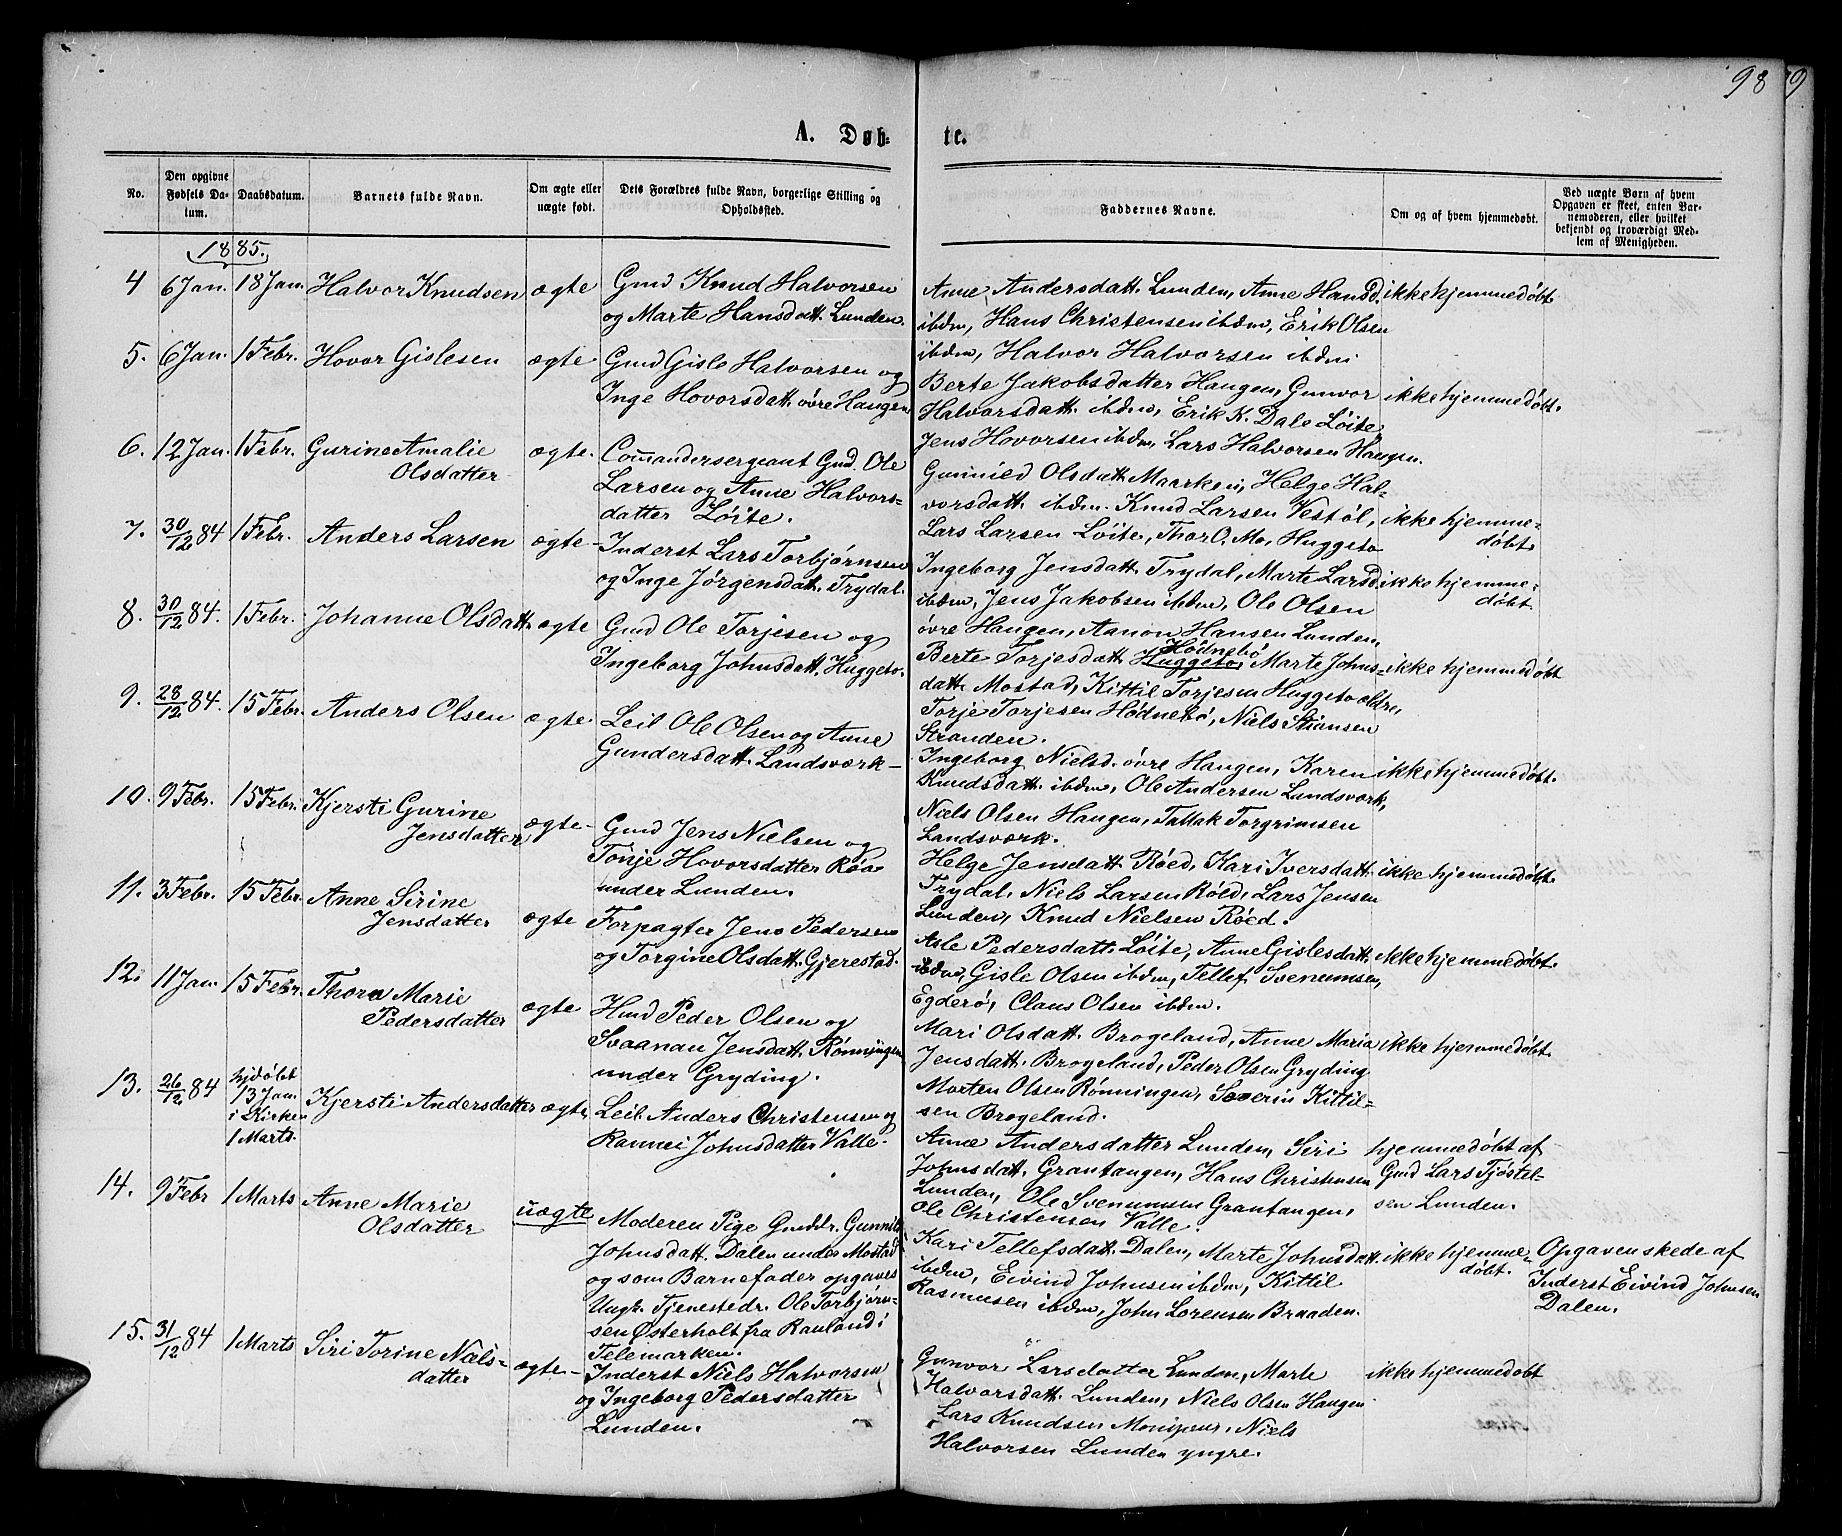 98 9
A. Døb- te.
No.
Den opgivne Fødsels Datum.
Daabsdatum.
Barnets fulde Navn.
Om ægte eller uægte født.
Dets Forældres fulde Navn, borgerlige Stilling og Opholdssted.
Faddernes Navne.
Om og af hvem hjemmedøbt.
Ved uægte Børn af hvem Opgaven er skeet, enten Barnemoderen, eller hvilket bekjendt og troværdigt Medlem af Menigheden.
1885.
4 6 Jan. 18 Jan. Halvor Knudsen ægte
Gmd Knud Halvorsen
og Marte Hansdatt. Lunden.
Anne Andersdatt. Lunden, Anne Hansd.
ibdm, Hans Christensen ibdm, Erik Olsen
ibdm, Halvor Halvorsen ibdm
ikke hjemmedøbt
5. 6 Jan. 1 Febr. Hovor Gislesen ægte
Gmd Gisle Halvorsen og
Inge Hovorsdatt. øvre Haugen
Berte Jakobsdatter Haugen, Gunvor
Halvorsdatt. ibdm, Erik K. Dale Løite,
Jens Hovorsen ibdm, Lars Halvorsen Haugen.
ikke hjemmedøbt.
6. 12 Jan. 1 Febr. Gurine Amalie
Olsdatter
ægte.
Comandersergeant Gmd. Ole
Larsen og Anne Halvors-
datter Løite.
Gunnild Olsdatt. Maarken, Helge Hal-
vorsdatt. ibdm. Knud Larsen Vestøl,
Lars Larsen Løite, Thor O. Mo, Huggeto
ikke hjemme-
døbt.
7. 30/12 84 1 Febr. Anders Larsen ægte-
Inderst Lars Torbjørnsen
og Inge Jørgensdatt. Trydal.
Ingeborg Jensdatt. Trydal, Marte Larsd.
ibdm, Jens Jakobsen ibdm, Ole Olsen
øvre Haugen, Aanon Hansen Lunden,
ikke hjemme-
døbt.
8. 30/12 84. 1 Febr. Johanne Olsdatt. ægte
Gmd Ole Torjesen og
Ingeborg Johnsdatt. Huggeto.
Hødnebø
Berte Torjesdatt. Huggeto, Marte Johns-
datt. Mostad, Kittil Torjesen Huggeto ældre,
Torje Torjesen Hødnebø, Niels Stiansen
Stranden.
ikke hjemmedøbt
9. 28/12 84. 15 Febr. Anders Olsen ægte
Leil. Ole Olsen og Anne
Gundersdatt. Landsværk-
Ingeborg Nielsd. øvre Haugen, Karen
Knudsdatt. ibdm, Ole Andersen Lundsvørk,
Niels Olsen Haugen, Tallak Torgrimsen
Landsværk.
ikke hjemmedøbt.
10. 9 Febr. 15 Febr. Kjersti Gurine
Jensdatter
ægte-
Gmd Jens Nielsen og
Tonje Hovorsdatter Røa
under Lunden.
Helge Jensdatt. Røed, Kari Iversdatt.
Trydal, Niels Larsen Røed, Lars Jensen
Lunden, Knud Nielsen Røed.
ikke hjemmedøbt.
11. 3 Febr. 15 Febr. Anne Sirine
Jensdatter
ægte
Forpagter Jens Pedersen
og Torgine Olsdatt. Gjerestad.
Asle Pedersdatt. Løite, Anne Gislesdatt.
ibdm, Gisle Olsen ibdm, Tellef Svenumsen,
Egderø, Claus Olsen ibdm.
ikke hjemmedøbt.
12. 11 Jan. 15 Febr. Thora Marie
Pedersdatter
ægte
Hmd Peder Olsen og
Svaanau Jensdatt. Rønningen
under Gryding.
Mari Olsdatt. Brogeland, Anne Maria
Jensdatt. Brogeland, Peder Olsen Gryding
Morten Olsen Rønningen, Søverin Kittil-
sen Brogeland.
ikke hjemmedøbt.
13. 26/12 84
hjdøbt
13 Jan.
i Kirken
1 Marts.
Kjersti Andersdatter ægte
Leil. Anders Christensen og
Rannei Johnsdatter Valle.
Anne Andersdatter Lunden, Siri
Johnsdatt. Grantangen, Hans Christensen
Lunden, Ole Svenumsen Grantangen,
Ole Christensen Valle.
hjemmedøbt af
Gmd Lars Tjøstel-
sen Lunden.
14. 9 Febr 1 Marts Anne Marie
Olsdatter
uægte
Moderen Pige Gmddr. Gunnild
Johnsdatt. Dalen under Mostad
og som Barnefader opgaves
Ungk. Tjenestedr. Ole Torbjørn-
sen Østerholt fra Rauland i
Telemarken.
Kari Tellefsdatt. Dalen, Marte Johnsdatt.
ibdm, Eivind Johnsen ibdm, Kittil
Rasmusen ibdm, John Lorensen Braaden.
ikke hjemme-
døbt.
Opgaven skede af
Inderst Eivind Johnsen
Dalen.
15. 31/12 84 1 Marts Siri Torine Niels-
datter
ægte-
Inderst Niels Halvorsen
og Ingeborg Pedersdatter
Lunden.
Gunvor Larsdatter Lunden, Marte
Halvorsdatt. Lunden, Niels Olsen Haugen
Lars Knudsen Niels
Halvorsen Lunden yngre.
ikke hjemmedøbt